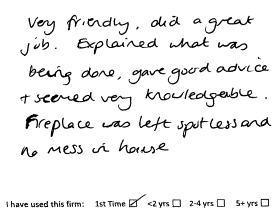 Very friendly, did a great
job. Explained what was
being done, gave good advice
+ seemed very knowledgeable.
Fireplace was left spotless and
no mess in house
I have used this firm: 1st Time ☑ <2 yrs ☐ 2-4 yrs ☐ 5+ yrs ☐